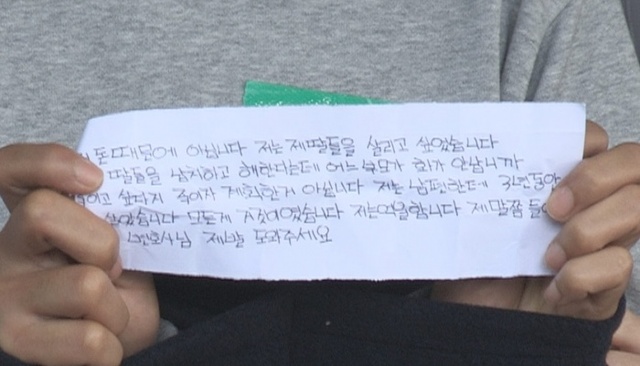 돈때문에 아닙니다 저는 제딸들을 살리고 싶었습니다
딸들을 납치하고 해한다는데 어느 부모가 화가 안납니까
싶다지 죽이자 계획한거 아닙니다 저는 남편한테 3년동안
살았습니다 모든게 지옥이였습니다 저는억울합니다 제말좀
변호사님 제발 도와주세요